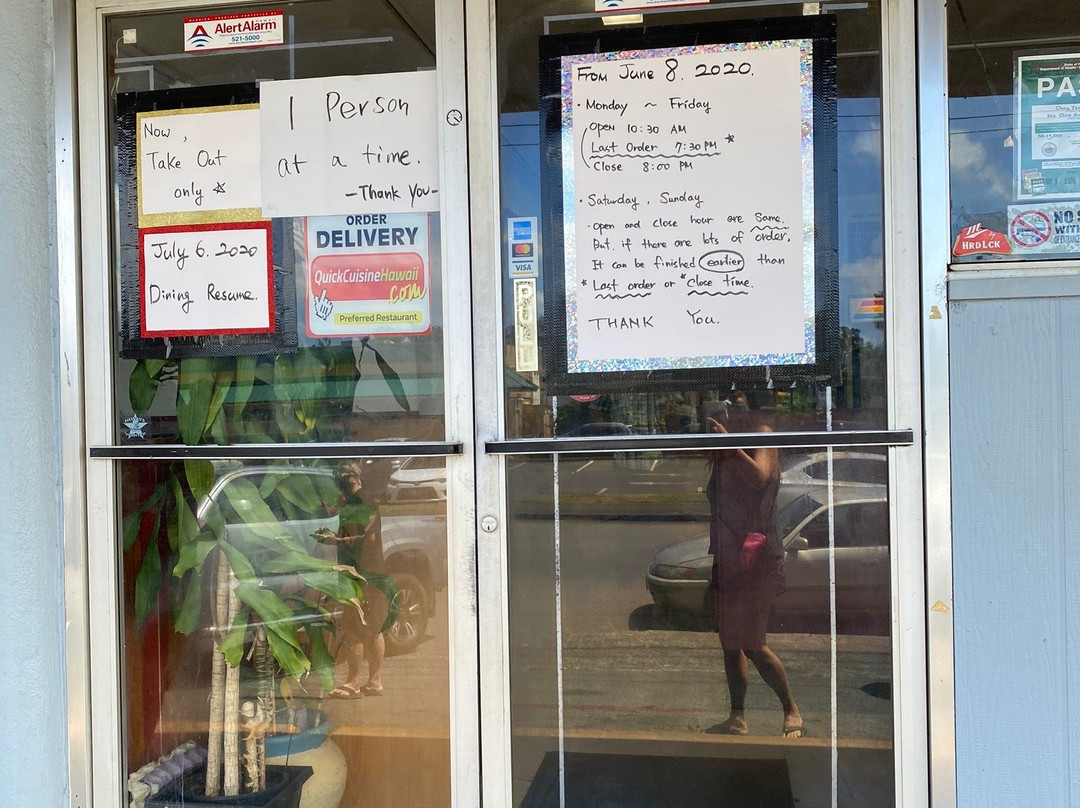 AlertAlarm
521-5000
Now,
Take Out
only ☆
1 Person
at a time.
-Thank You-
July 6. 2020
Dining Resume.
ORDER
DELIVERY
QuickCuisineHawaii
.com
Preferred Restaurant
VISA
From June 8. 2020.
· Monday ~ Friday
Open 10:30 AM
Last Order 7:30 PM *
Close 8:00 PM
· Saturday, Sunday
- Open and Close hour are Same.
But. if there are lots of order,
It can be finished earlier than
* Last order or * Close time.
THANK You.
PA
HRD LCK
NO S
WITH